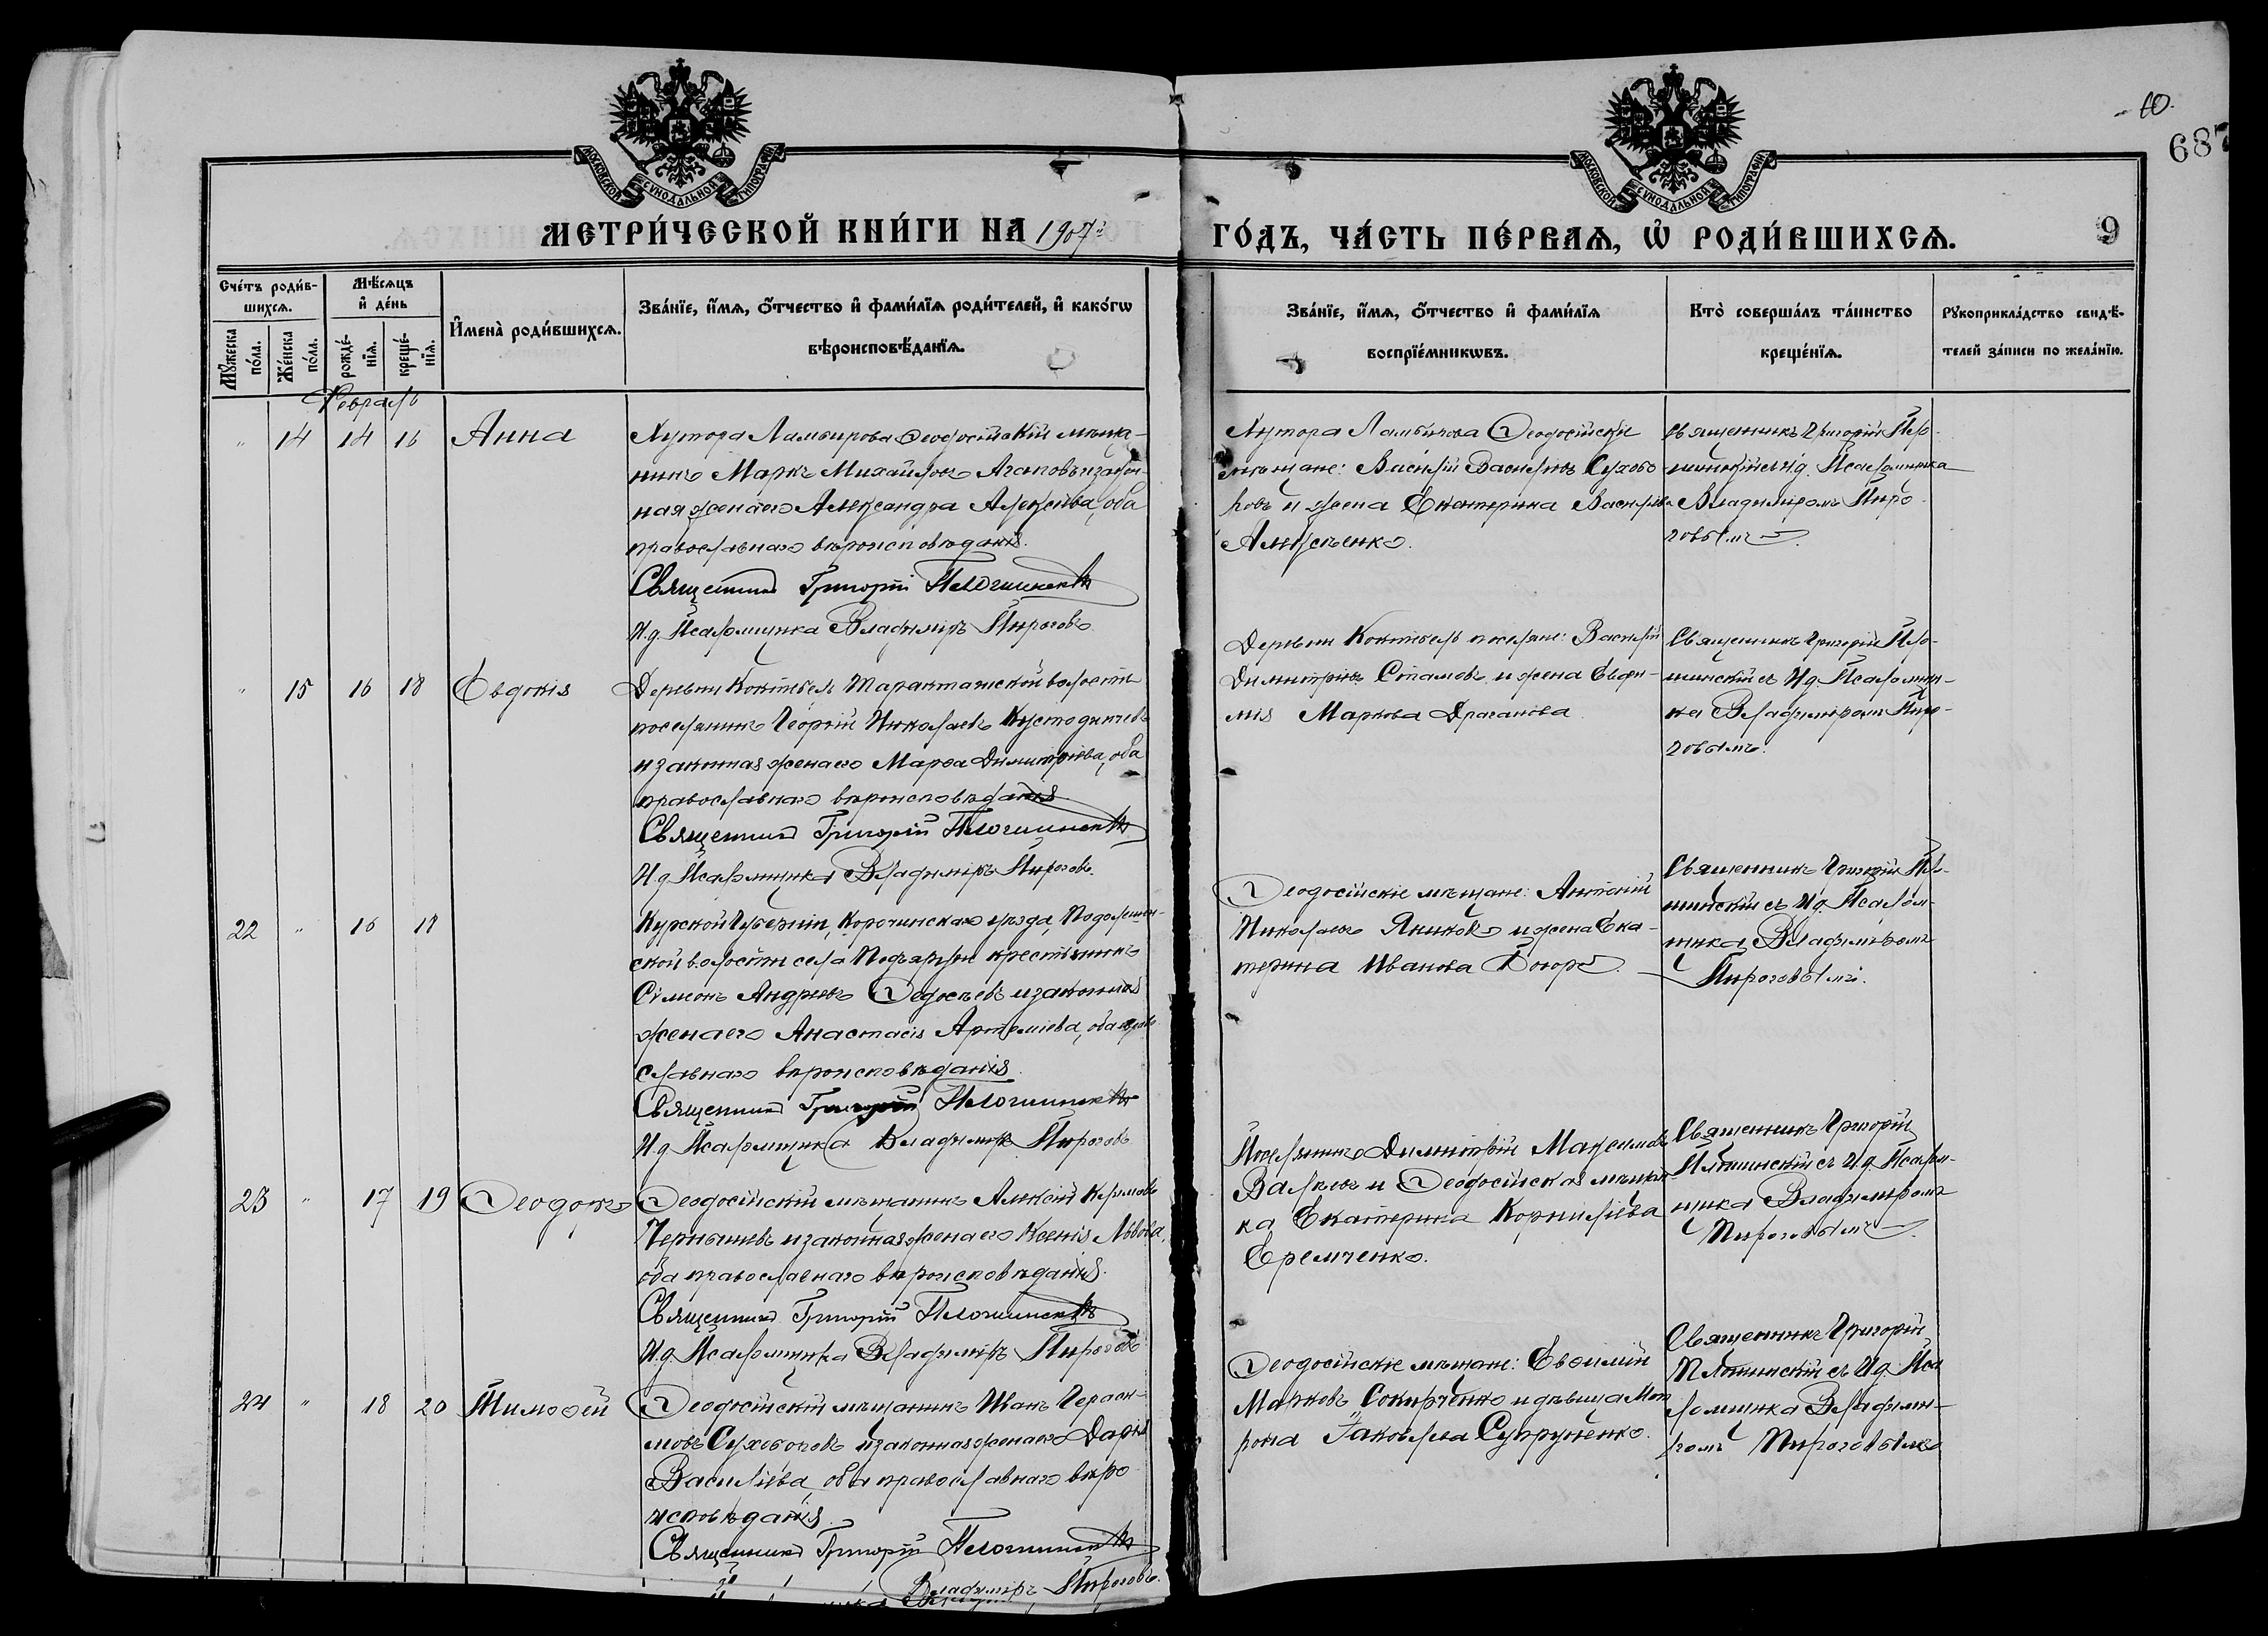 10.
687
МОСКОВСКОЙ СУНОДАЛЬНОЙ ТИПОГРАФІИ
МОСКОВСКОЙ СУНОДАЛЬНОЙ ТИПОГРАФІИ
МЕТРИ́ЧЕСКОЙ КНИ́ГИ НА 1907й
ГО́ДЪ, ЧА́СТЬ ПЕ́РВАѦ, Ѡ҆ РОДИ́ВШИХСѦ.
9
Сче́тъ роди́в-
шихсѧ.
Мꙋ́жеска по́ла.
Же́нска по́ла.
Мѣ́сѧцъ
и҆ де́нь
рожде́-
нїѧ.
креще́-
нїѧ.
И҆мена̀ роди́вшихсѧ.
Зва́нїе, и҆́мѧ, ѻ҆́тчество и҆ фами́лїѧ роди́телей, и҆ како́гѡ
вѣроисповѣ́данїѧ.
Зва́нїе, и҆́мѧ, ѻ҆́тчество и҆ фами́лїѧ
воспрїе́мникѡвъ.
Кто̀ соверша́лъ та́инство
креще́нїѧ.
Рꙋкоприкла́дство свидѣ́-
телей за́писи по жела́нїю.
Февраль
" 14 14 16 Анна
Хутора Ѳеодосійскій мѣща-
нинъ Маркъ Михайловъ Агаповъ и закон-
ная жена его Александра Алексѣева, оба
православнаго вѣроисповѣданія.
Священникъ Григорій
И.д. Псаломщика Владиміръ Пироговъ.
Хутора Ѳеодосійскіе
мѣщане: Василій Васильевъ Сухово-
ровъ и жена Екатерина Васильева
Священникъ Григорій
и.д. Псаломщика
Владиміромъ Пиро-
говымъ.
" 15 16 18 Евдокія
Деревни Коктебель Таракташской волости
поселянинъ Георгій Николаевъ
и законная жена его Марѳа Димитріева, оба
православнаго вѣроисповѣданія
Священникъ Григорій
И.д. Псаломщика Владиміръ Пироговъ.
Деревни Коктебель поселяне: Василій
Димитріевъ Стамовъ и жена Евфи-
мія Маркова Драганова
Священникъ Григорій
съ И.д. Псаломщи-
ка Владиміромъ Пиро-
говымъ.
22 " 16 18
Курской Губерніи, Корочинскаго уѣзда,
ской волости села крестьянинъ
Симеонъ Андреевъ Ѳедосѣевъ и законная
жена его Анастасія Артеміева, оба право-
славнаго вѣроисповѣданія.
Священникъ Григорій
И.д. Псаломщика Владиміръ Пироговъ
Ѳеодосійскіе мѣщане: Антоній
Николаевъ Яниковъ и жена Ека-
терина Иванова
Священникъ Григорій
съ И.д. Псалом-
щика Владиміромъ
Пироговымъ.
23 " 17 19 Ѳеодоръ
Ѳеодосійскій мѣщанинъ Алексій Карповъ
Чернышевъ и законная жена его Ксенія Львова,
оба православнаго вѣроисповѣданія.
Священникъ Григорій
И.д. Псаломщика Владиміръ Пироговъ
Поселянинъ Димитрій Максимовъ
и Ѳеодосійская мѣщан-
ка Екатерина Корниліева
Еремченко.
Священникъ Григорій
съ И.д. Псалом-
щика Владиміромъ
Пироговымъ.
24 " 18 20 Тимоѳей
Ѳеодосійскій мѣщанинъ Іоанъ Гераси-
мовъ и законная жена его Дарія
Василіева, оба православнаго вѣро-
исповѣданія.
Священникъ Григорій
Владиміръ Пироговъ.
Ѳеодосійскіе мѣщане: Евѳимій
Марковъ и дѣвица Мат-
рона Іаковлева Супруненко.
Священникъ Григорій
съ И.д. Пса-
ломщика Владимі-
ромъ Пироговымъ